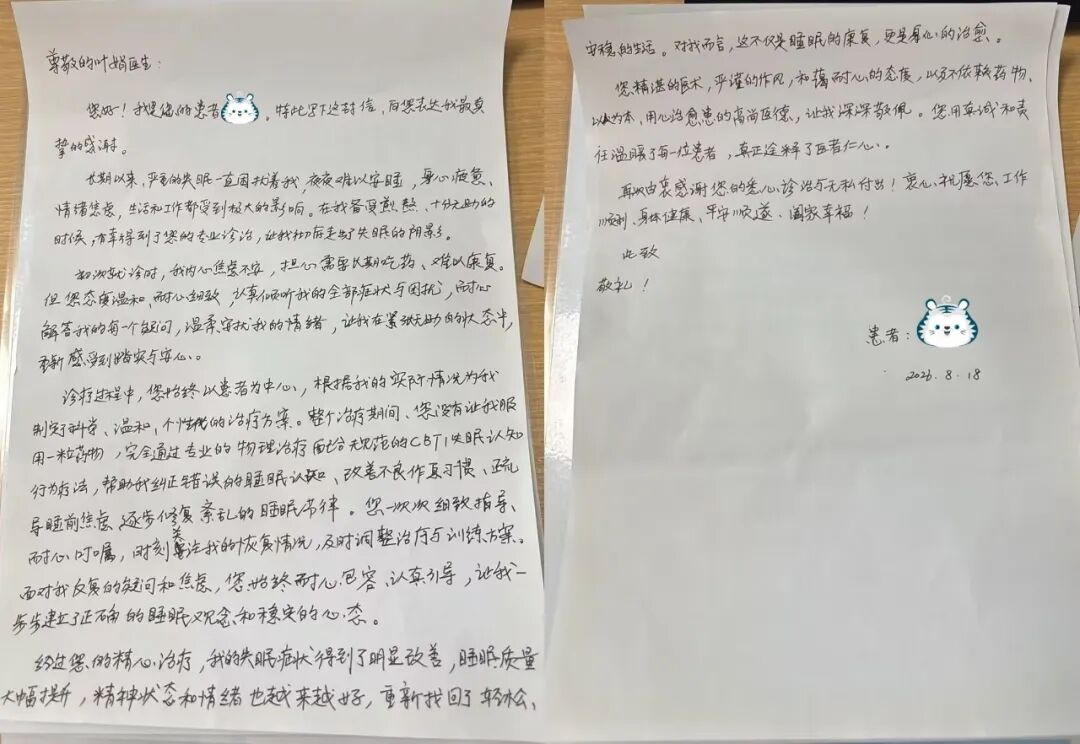 尊敬的叶娟医生：
您好！我是您的患者，特此写下这封信，向您表达我最真
挚的感谢。
长期以来，严重的失眠一直困扰着我，夜夜难以安睡，身心疲惫、
情绪焦虑，生活和工作都受到极大的影响。在我备受煎熬、十分无助的
时候，有幸得到了您的专业诊治，让我彻底走出了失眠的阴影。
初次就诊时，我内心焦虑不安，担心需要长期吃药、难以康复。
但您态度温和、耐心细致，认真倾听我的全部症状与困扰，耐心
解答我的每一个疑问，温柔安抚我的情绪，让我在紧绷无助的状态中，
重新感受到踏实与安心。
诊疗过程中，您始终以患者为中心，根据我的实际情况为我
制定了科学、温和、个性化的治疗方案。整个治疗期间、您没有让我服
用一粒药物，完全通过专业的物理治疗配合规范的CBTI失眠认知
行为疗法，帮助我纠正错误的睡眠认知、改善不良作息习惯、疏
导睡前焦虑逐步修复紊乱的睡眠节律。您一次次细致指导、
耐心叮嘱，时刻关注我的恢复情况，及时调整治疗与训练方案。
面对我反复的疑问和焦虑，您始终耐心包容、认真引导，让我一
步步建立了正确的睡眠观念和稳定的心态。
经过您的精心治疗，我的失眠症状得到了明显改善，睡眠质量
大幅提升，精神状态和情绪也越来越好，重新找回了轻松、
安稳的生活。对我而言，这不仅是睡眠的康复，更是身心的治愈。
您精湛的医术，严谨的作风，和蔼耐心的态度，以及不依赖药物、
以人为本、用心治愈患的高尚医德，让我深深敬佩。您用真诚和责
任温暖了每一位患者，真正诠释了医者仁心。
再次由衷感谢您的悉心诊治与无私付出！衷心祝愿您、工作
顺利、身体健康、平安顺遂、阖家幸福！
此致
敬礼！
患者：
2026.8.18